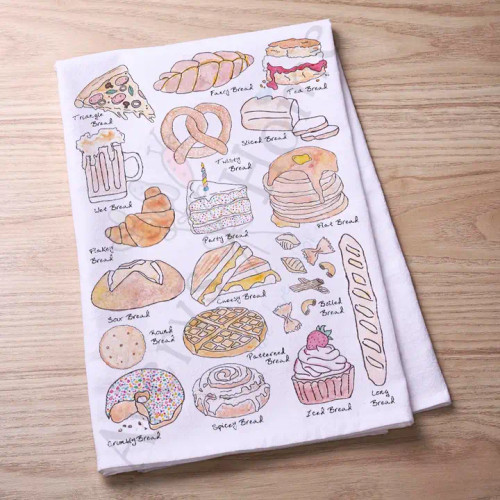 Triangle
Bread
Fancy Bread
Tea Bread
Sliced Bread
Twisty
Bread
Wet Bread
Flakey
Bread
Party Bread
Flat Bread
Sour Bread
Cheesy Bread
Boiled
Bread
Round
Bread
Patterned
Bread
Long
Bread
Crumbly Bread
Spicey Bread
Iced Bread